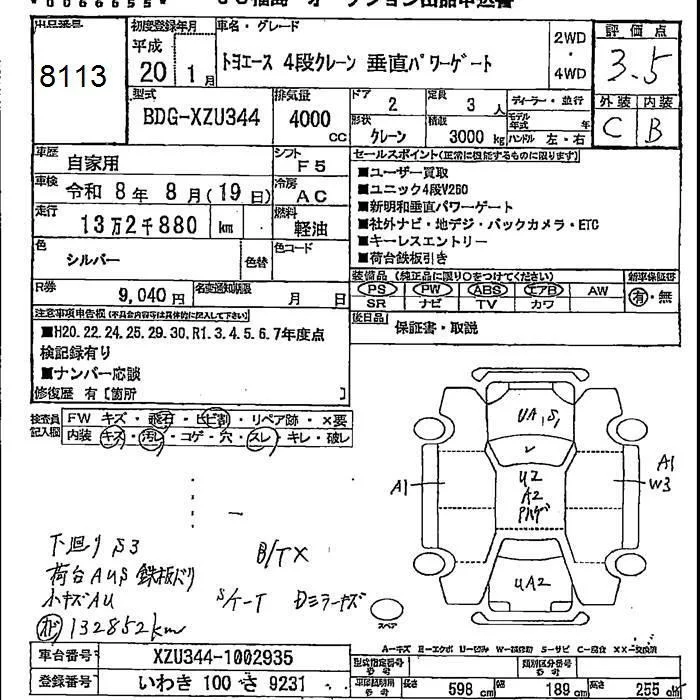 出品番号
8113
初度登録年月
平成
20 1月
車名・グレード
トヨエース 4段クレーン 垂直パワーゲート
2WD
・
4WD
評価点
3.5
外装 内装
C B
型式
BDG-XZU344
排気量
4000
CC
ドア
2
定員
3人
ディーラー・並行
形状
クレーン
積載
3000kg
モデル年式 年
ハンドル 左・右
車歴
自家用
シフト
F5
車検
令和 8年 8月(19日)
冷房
AC
走行
13万2千880 km
燃料
軽油
色
シルバー
色替
色コード
セールスポイント(正常に機能するものに限ります)
■ユーザー買取
■ユニック4段V260
■新明和垂直パワーゲート
■社外ナビ・地デジ・バックカメラ・ETC
■キーレスエントリー
■荷台鉄板引き
R券
9,040円
名変通知期限
月 日
装備品(純正品に限り○をつけてください)
PS PW ABS エアB AW
SR ナビ TV カワ
新車保証書
有・無
後日品
保証書・取説
注意事項申告欄(不具合内容等は具体的に記入して下さい)
■H20.22.24.25.29.30.R1.3.4.5.6.7年度点
検記録有り
■ナンバー応談
修復歴 有[箇所 ]
検査員
記入欄
FW キズ・飛石・ヒビ割・リペア跡・×要
内装 キズ・汚レ・コゲ・穴・スレ・キレ・破レ
UA,S,
A1
U2
A2
A1
W3
UA2
スペア
下廻り S3
B/TX
荷台AUS 鉄板バリ
小キズAU
Dミラーキズ
132852km
A=キズ E=エクボ U=凹み W=補修跡 S=サビ C=腐食 XX=交換済
車台番号
XZU344-1002935
型式指定番号
類別区分番号
登録番号
いわき 100 さ 9231
長さ 598cm
幅 189cm
高さ 255cm